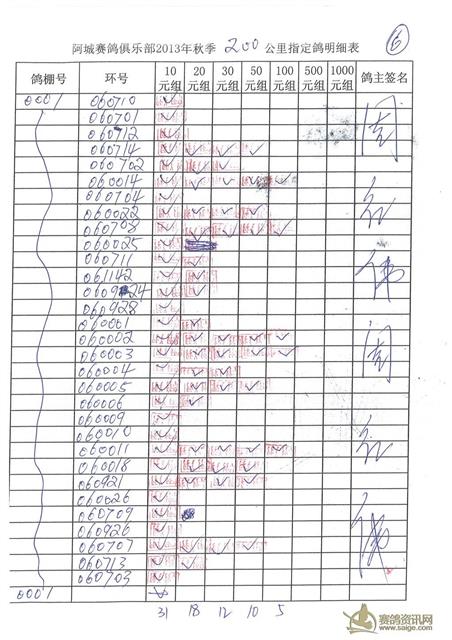 阿城赛鸽俱乐部2013年秋季 200 公里指定鸽明细表 6
鸽棚号 环号 10元组 20元组 30元组 50元组 100元组 500元组 1000元组 鸽主签名
0001 060710
060701
060712
060714
060702
060014
060704
060022
060708
060025
060711
061142
060924
060928
060001
060002
060003
060004
060005
060006
060009
060010
060011
060018
060921
060026
060709
060926
060707
060713
060703
0001
31 18 12 10 5
赛鸽资讯网
www.saige.com